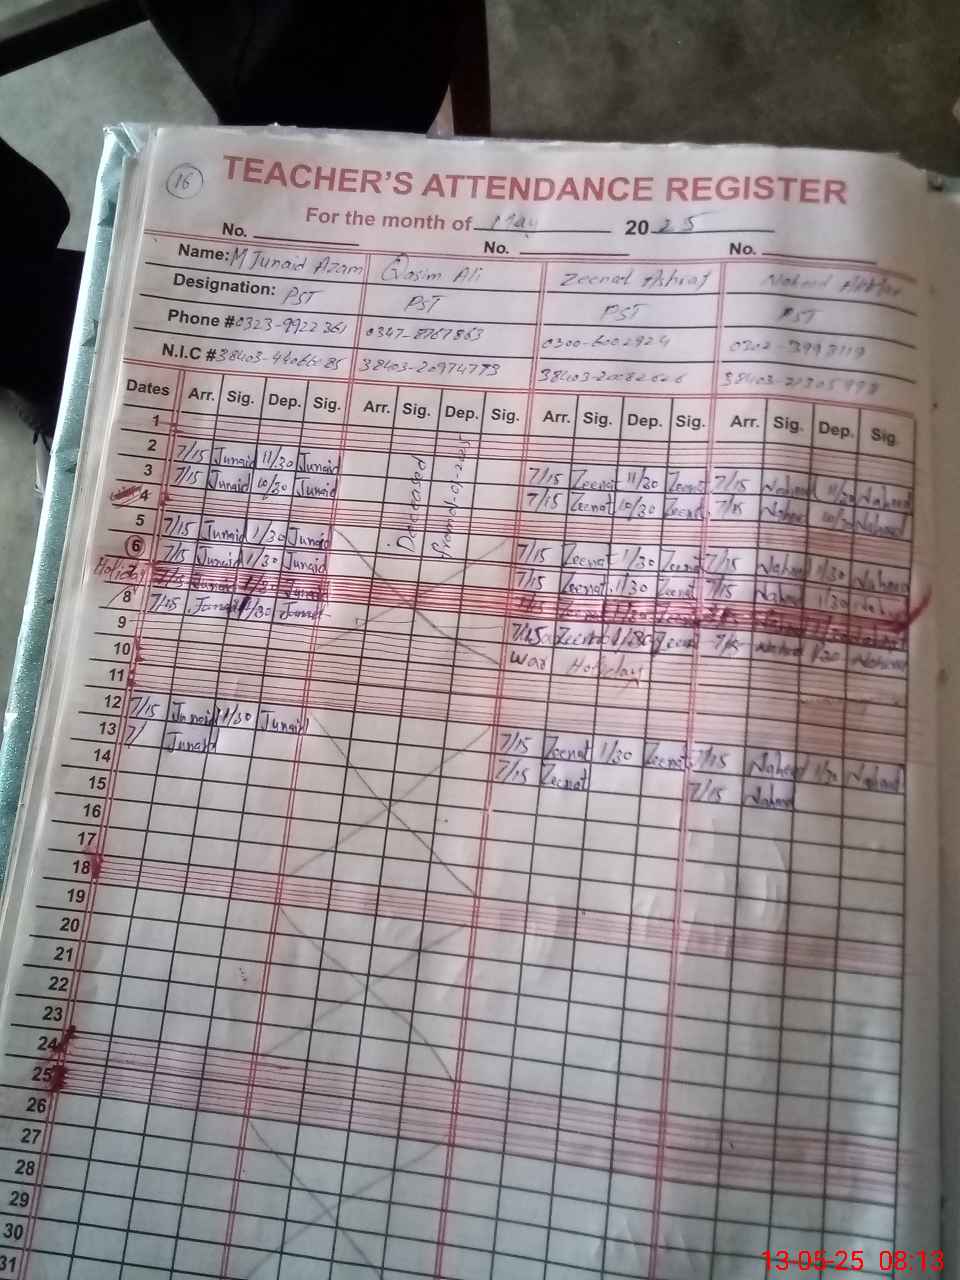 16
TEACHER'S ATTENDANCE REGISTER
For the month of May 2025
No. No. No.
Name: M Junaid Azam Qasim Ali Zeenat Ashraf Naheed
Designation: PST PST PST PST
Phone # 0323-9922361 0347-8767863 0300-6002924 0302-3993119
N.I.C # 38403-20974773
Dates Arr. Sig. Dep. Sig. Arr. Sig. Dep. Sig. Arr. Sig. Dep. Sig. Arr. Sig. Dep. Sig.
1
2 7/15 Junaid 11/30 Junaid 7/15 Zeenat 11/30 Zeenat 7/15 Naheed 11/30 Naheed
3 7/15 Junaid 10/30 Junaid 7/15 Zeenat 10/30 Zeenat 7/15 Naheed 10/30 Naheed
4
Deceased
5 7/15 Junaid 1/30 Junaid 7/15 Zeenat 1/30 Zeenat 7/15 Naheed 1/30 Naheed
6 7/15 Junaid 1/30 Junaid 7/15 Zeenat 1/30 Zeenat 7/15 Naheed 1/30 Naheed
Holiday 7/15 Junaid 1/30 Junaid
8 7/15 Junaid 1/30 Junaid 7/15 Zeenat 1/30 Zeenat 7/15 Naheed 1/30 Naheed
9 War Holidays
10
11
12 7/15 Junaid 1/30 Junaid 7/15 Zeenat 1/30 Zeenat 7/15 Naheed 1/30 Naheed
13 7/ Junaid 7/15 Zeenat 7/15 Naheed
14
15
16
17
18
19
20
21
22
23
24
25
26
27
28
29
30
31
13-05-25 08:13